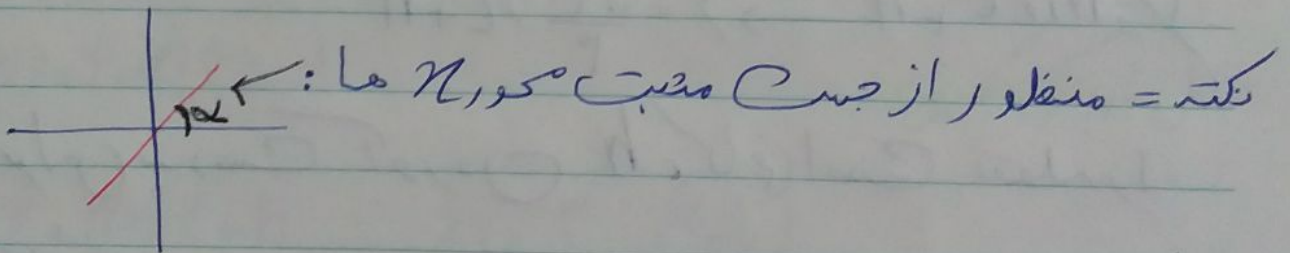 نکته = منظور از جهت مثبت محور x ها :
α